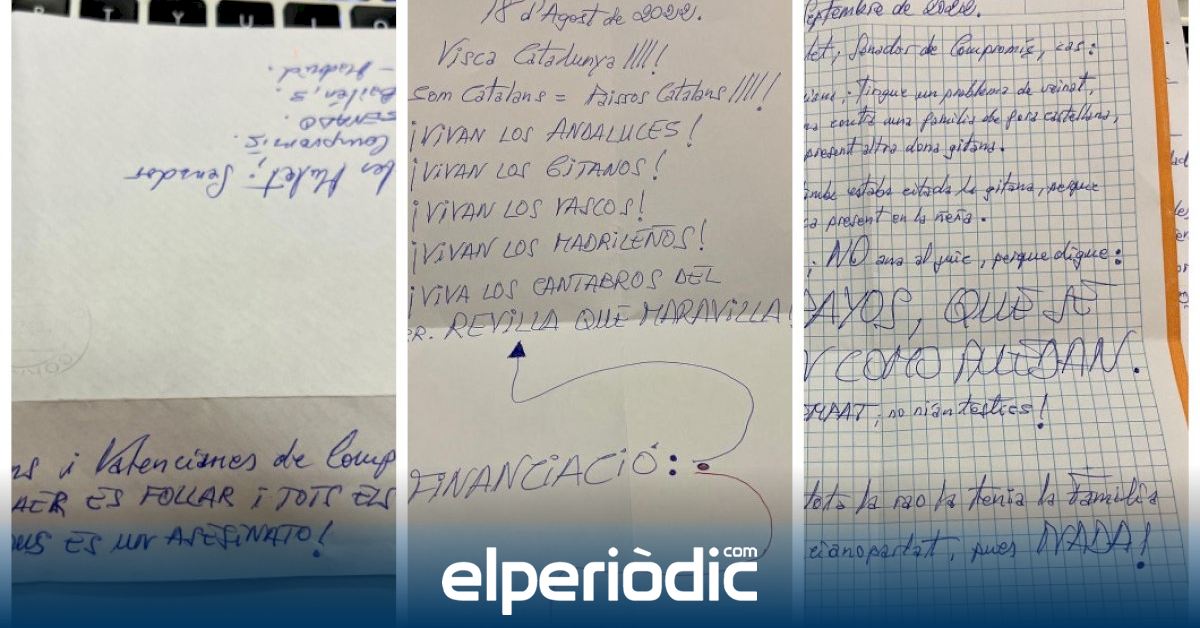 R T Y U I O
– Madrid.
Bailén, 3.
SENADO.
Compromís.
les Mulet; Senador
ns i Valencianes de Comp
AER ES FOLLAR I TOTS ELS
ES UN ASESINATO!
18 d'Agost de 2022.
Visca Catalunya !!!!
Som Catalans = Paissos Catalans !!!!!
¡VIVAN LOS ANDALUCES!
¡VIVAN LOS GITANOS!
¡VIVAN LOS VASCOS!
¡VIVAN LOS MADRILEÑOS!
¡VIVA LOS CANTABROS DEL
SR. REVILLA QUÉ MARAVILLA!
FINANCIACIÓ:
eptembre de 2022.
let, Senador de Compromís, cas:
Tingue un problema de veinat,
contra una familia de fora castellana,
present altra dona gitana.
estaba citada la gitana, perque
present en la
NO ana al juic, perque digue:
PAYOS, QUE SE
COMO PUEDAN.
no nian testics!
tota la rao la tenia la familia
pues NADA!
elperiòdic.com